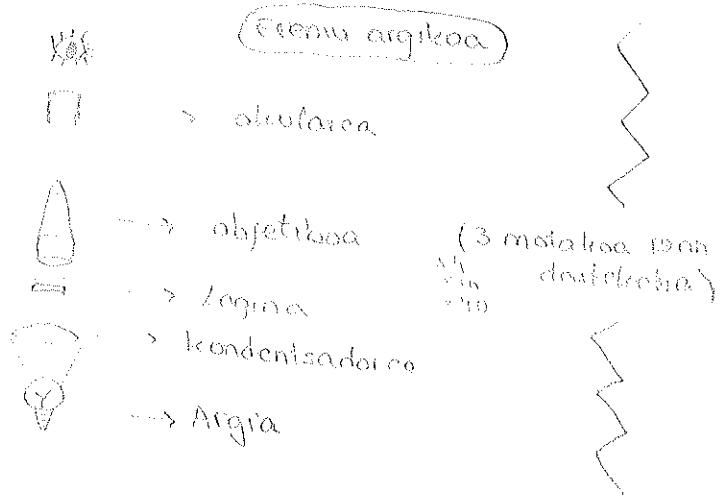 Eremu argikoa
→ okularra
→ objetiboa (3 motakoa izan daitekeela)
x4
x10
x40
→ Lagina
→ kondentsadorea
→ Argia